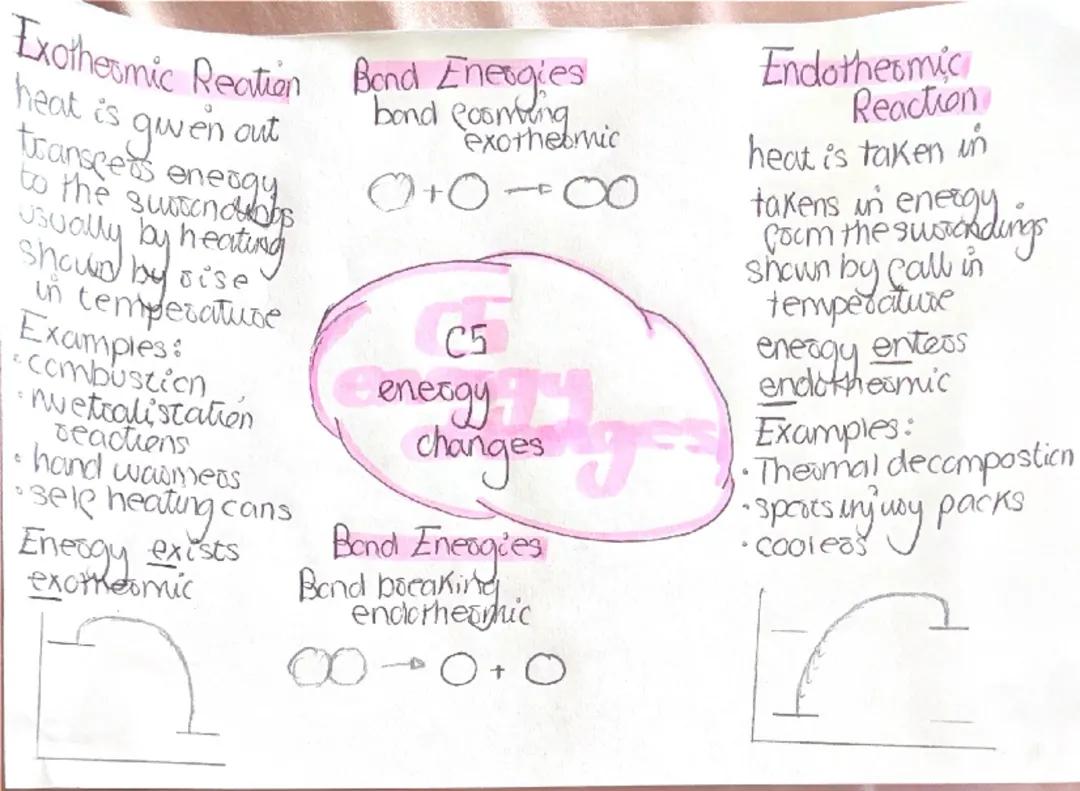 Exothermic Reation
heat is given out
transfers energy
to the surroundings
usually by heating
shown by rise
in temperature
Examples:
• combustion
• nuetralistation
reactions
• hand warmers
• self heating cans
Energy exists
exothermic
Bond Energies
bond forming
exothermic
+ →
C5
energy
changes
Bond Energies
Bond breaking
endothermic
→ +
Endothermic
Reaction
heat is taken in
takens in energy
form the surrondings
shown by fall in
temperature
energy enters
endothermic
Examples:
• Thermal decompostion
• sports injury packs
• coolers